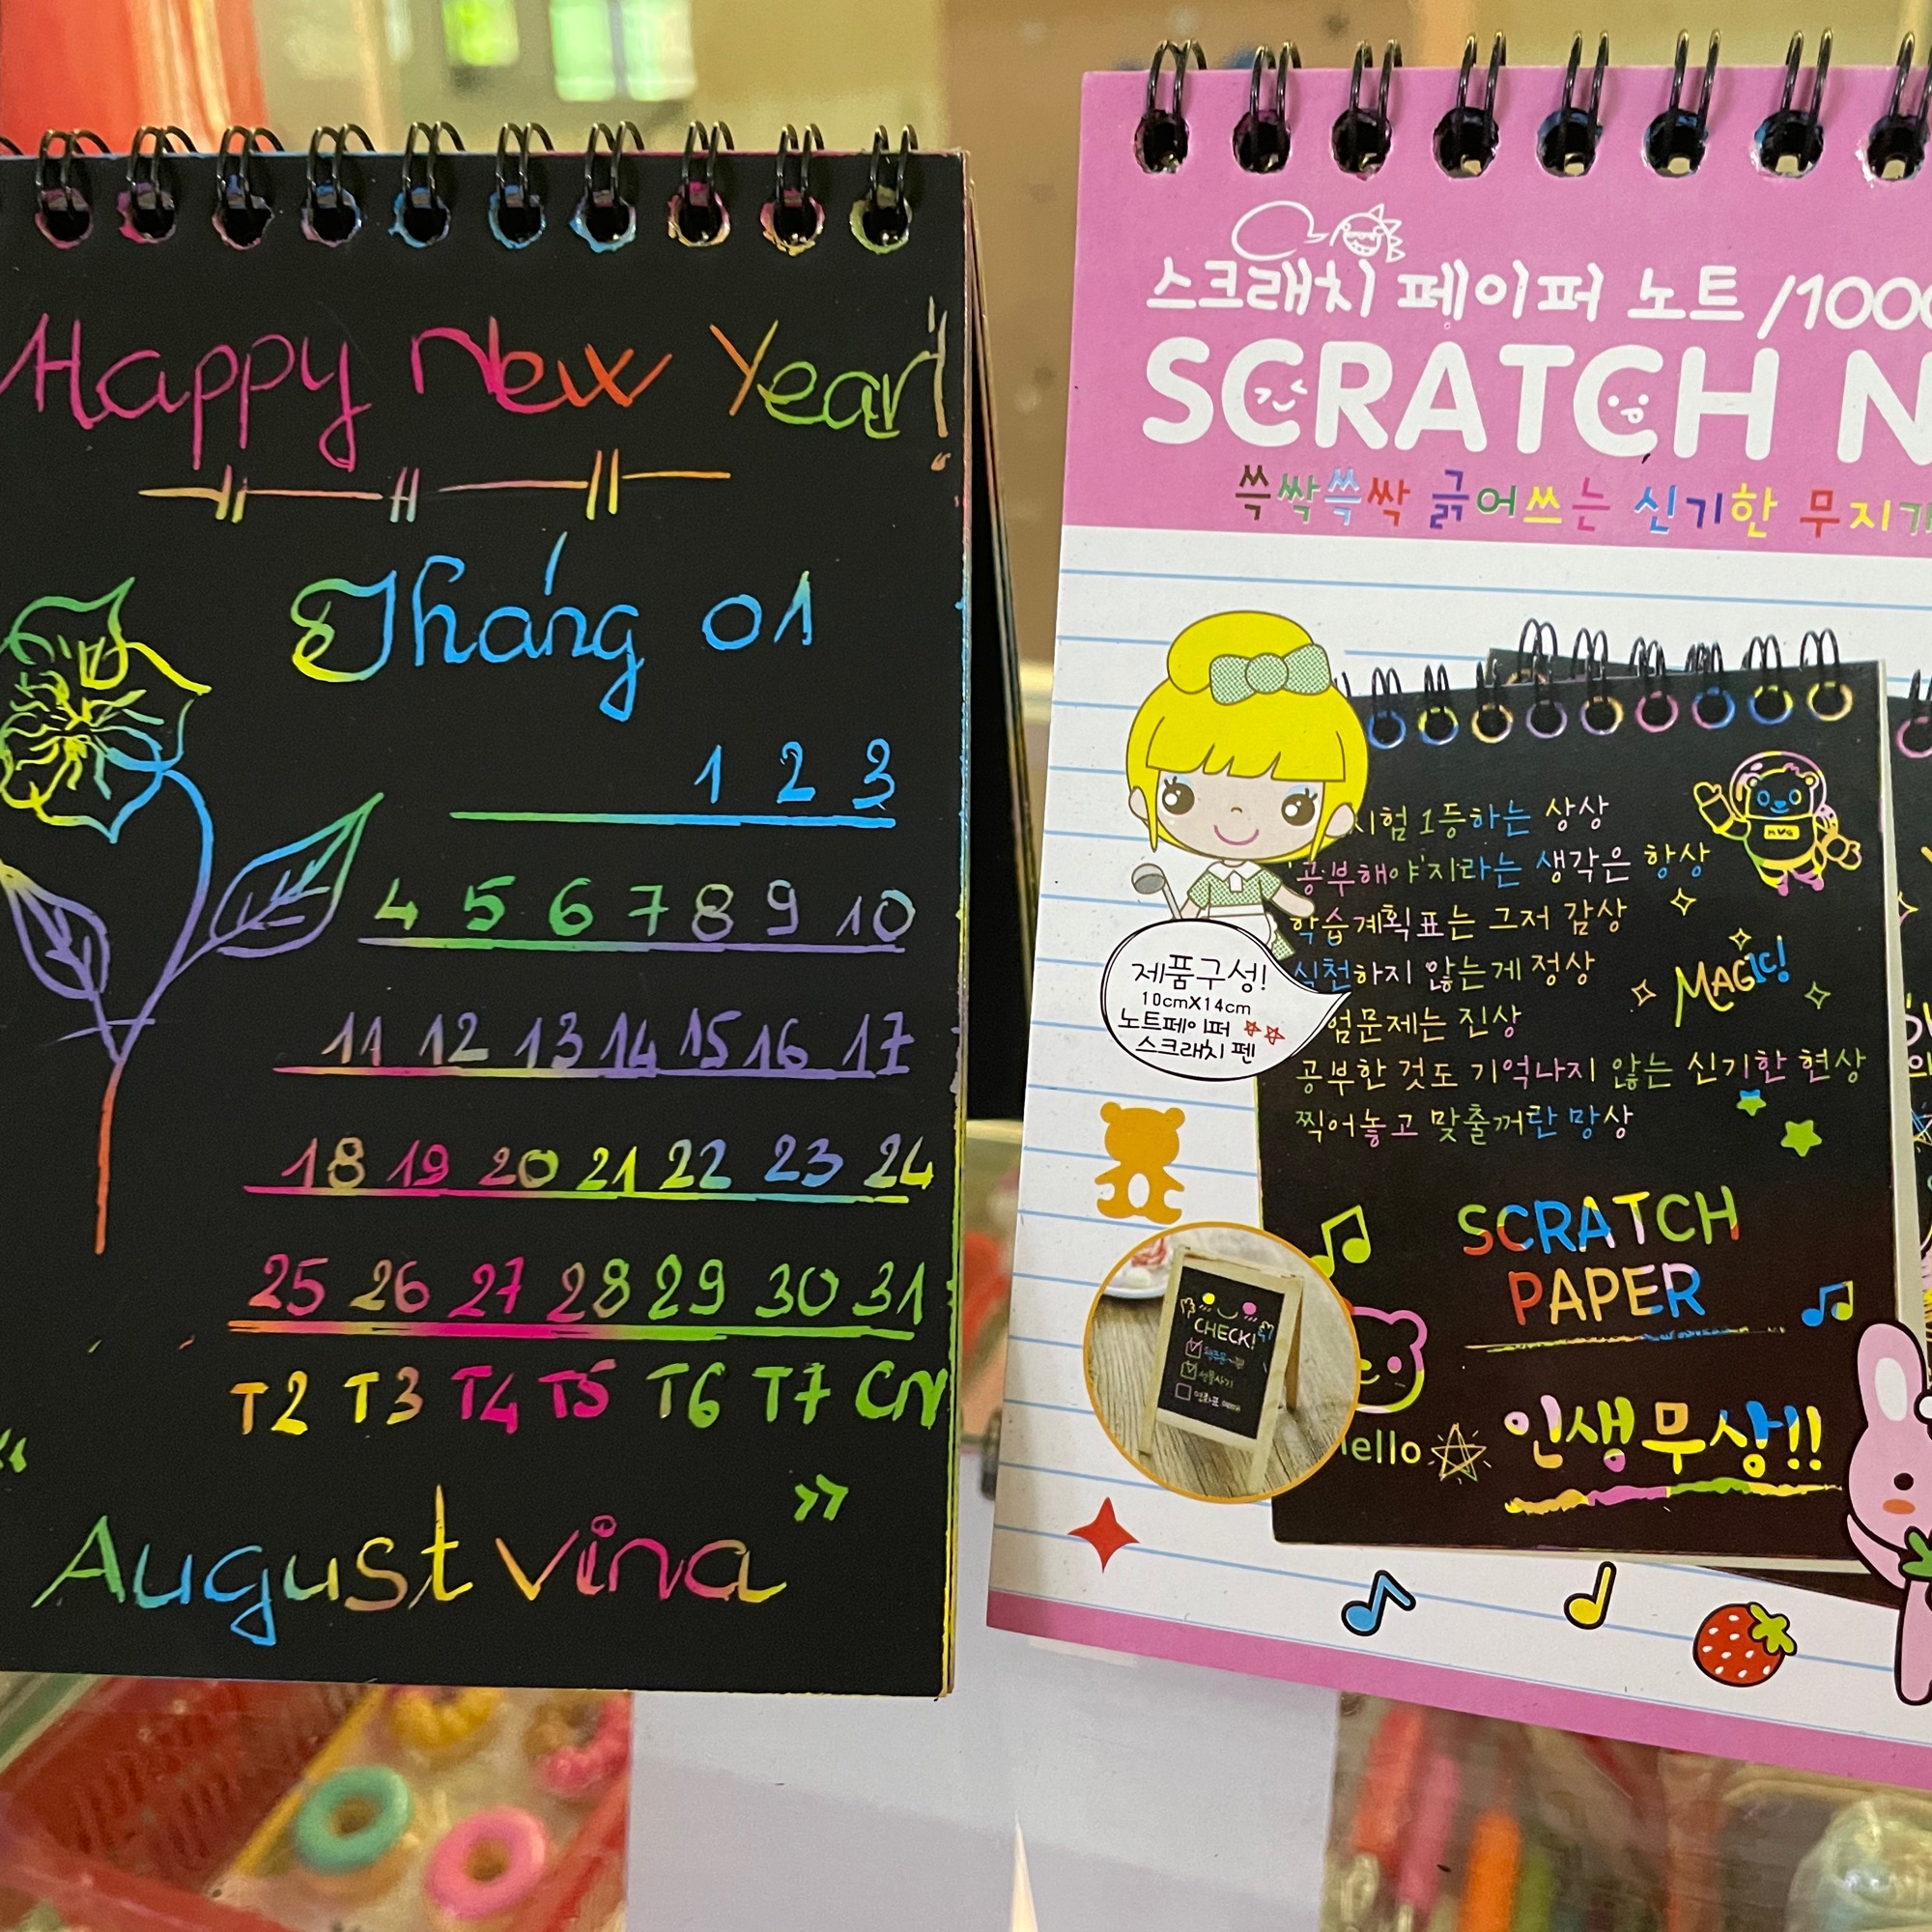 Happy New Year!
Tháng 01
1 2 3
4 5 6 7 8 9 10
11 12 13 14 15 16 17
18 19 20 21 22 23 24
25 26 27 28 29 30 31
T2 T3 T4 T5 T6 T7 CN
"August vina"
스크래치 페이퍼 노트 /100
SCRATCH N
쓱싹쓱싹 긁어쓰는 신기한 무지
시험 1등하는 상상
'공부해야'지라는 생각은 항상
학습계획표는 그저 감상
실천하지 않는게 정상
엄문제는 진상
공부한 것도 기억나지 않는 신기한 현상
찍어놓고 맞출꺼란 망상
MAGIC!
제품구성!
10cmX14cm
노트페이퍼
스크래치 펜
SCRATCH
PAPER
CHECK!
ello
인생무상!!